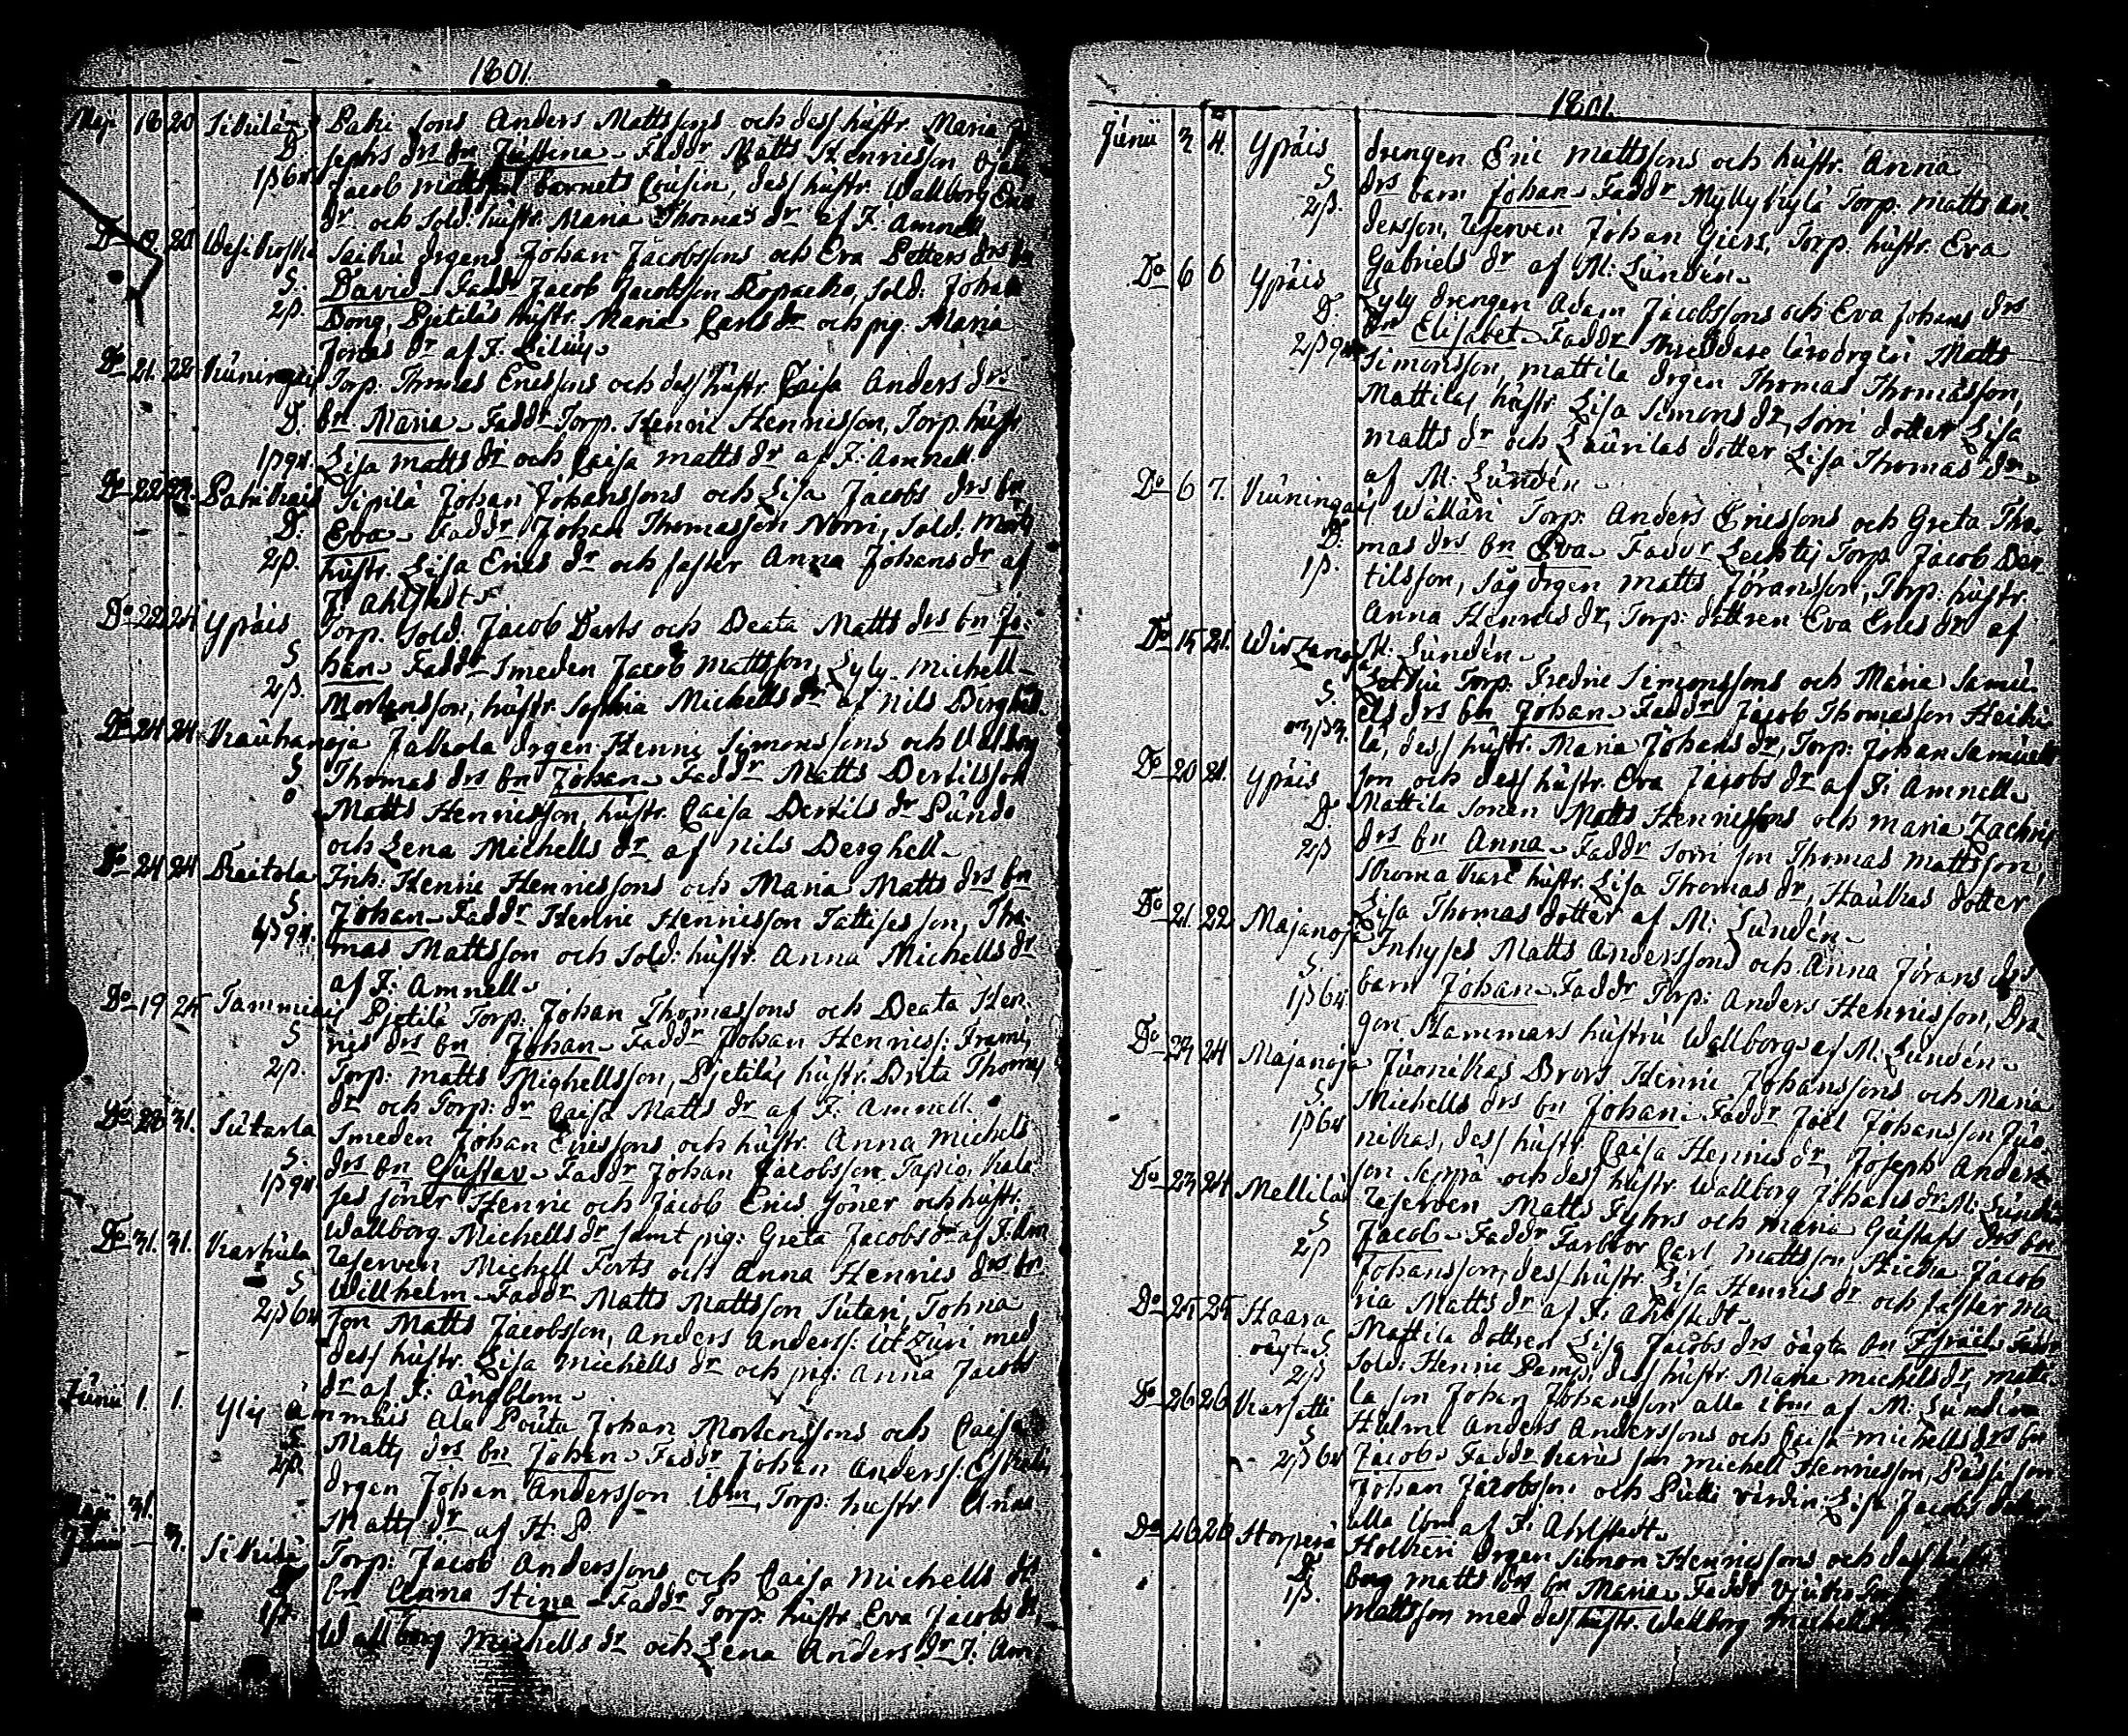 1801.
Maji 18 20 Sikilä Paki sons Anders Mattssons och dess hustr. Maria Jo
D. sephs drs bn Justina. Faddr Matts Henricsson
1ß6 Jacob Mattsson barnets Cousin, dess hustr. Wallborg Erics
dr och Sold: hustr. Maria Thomas dr af J. Amnell
Do 20 Wesikoski Saiku drgens Johan Jacobssons och Eva Petters drs bn
S. David. Faddr Jacob Jacobsson Sold: Johan
2ß. Bong, Pjetiläs hustr. Maria Carls dr och pig. Maria
Jonas dr af J. Lilius
Do 21. 22 Kuningais Torp. Thomas Ericssons och dess hustr. Caisa Anders drs
D. bn Maria. Faddr Torp. Henric Henricsson, Torp. hustr
1ß9 Lisa Matts dr och Caisa Matts dr af J: Amnell
Do 22 Pahikais Sipilä Johan Johanssons och Lisa Jacobs drs bn
D. Eva. Faddr Johan Thomasson Norri, Sold:
2ß. hustr. Lisa Erics dr och faster Anna Johans dr af
J: Ahlstedt
Do 22 24 Ypäis Torp. Sold. Jacob Barks och Beata Matts drs bn Jo:
S han. Faddr Smeden Jacob Mattsson, Lyly. Michell
2ß. Mortensson, hustr. Sophia Michells dr af Nils Berghell.
Do 24 24 Kauhanoja Jakola drgen Henric Simonssons och Valborg
S Thomas drs bn Johan. Faddr Matts Bertilsson
o Matts Henricsson, hustr. Caisa Bertils dr
och Lena Michells dr af Nils Berghell
Do 24 24 Raitola Inh: Henric Henricssons och Maria Matts drs bn
S. Johan. Faddr Henric Henricsson son, Tho
1ß9. mas Mattsson och Sold: hustr. Anna Michells dr
af J: Amnell
Do 19 25 Tammiais Pjetilä Torp. Johan Thomassons och Beata Hen
S rics drs bn Johan. Faddr Johan Henricss: Frami,
2ß. Torp: Matts Mighellsson, Pjetiläs hustr. Brita Thomas
dr och Torp: dr Caisa Matts dr af J: Amnell.
Do 28 31. Sutarla Smeden Johan Ericssons och hustr. Anna Michels
S. drs bn Gustav. Faddr Johan Jacobsson Tapio,
1ß9 söner Henric och Jacob Erics söner och hustr.
Wallborg Michells dr samt pig: Greta Jacobs dr af J: Am
Do 31. 31. Karhula Reserven Michell Forts och Anna Henrics drs bn
S Willhelm. Faddr Matts Mattsson Sutari, Tohna
2ß6 son Matts Jacobsson, Anders Anderss: med
dess hustr. Lisa Michells dr och pig: Anna Jacobs
dr af J: Ängblom
Junii 1. 1. Ylis ämmäis Ala Pouta Johan Mortenssons och Caisa
S. Matts drs bn Johan. Faddr Johan Anderss:
2ß. drgen Johan Andersson ibm, Torp: hustr Anna
Matts dr af H. P.
Maji 31.
Junii 3. Sikilä Torp: Jacob Anderssons och Caisa Michells drs
D bn Anna Stina. Faddr Torp. hustr. Eva Jacobs dr,
1ß. Wallborg Michells dr och Lena Anders dr J. Am
1801.
Junii 3 4. Ypäis drengen Eric Mattssons och hustr. Anna
S drs barn Johan. Faddr Myllykylä Torp. Matts An
2ß. dersson, Reserven Johan Giers, Torp. hustr. Eva
Gabriels dr af M: Lunden
Do 6 6 Ypäis Lyly drengen Adam Jacobssons och Eva Johans drs
D. bn Elisabet. Faddr Matts
2ß9 Simonsson, Mattila drgen Thomas Thomasson,
Mattilas hustr. Lisa Simons dr, Sorri dotter Lisa
Matts dr och Laurilas dotter Lisa Thomas dr
af M: Lunden
Do 6 7. Kuningais Wäkäri Torp: Anders Ericssons och Greta Tho
D. mas drs bn Eva. Faddr Torp. Jacob Ber
1ß. tilsson, Såg drgen Matts Joransson, Torp: hustr.
Anna Henrics dr, Torp: dottren Eva Erics dr af
M: Lunden
Do 15 21. Wirzanoja Torp. Fredric Simonssons och Maria Samu
S. els drs bn Johan. Faddr Jacob Thomasson Heiki
lä, dess hustr. Maria Johans dr, Torp: Johan Samuels
son och dess hustr. Eva Jacobs dr af J: Amnell
Do 20 21. Ypäis Mattila sonen Matts Henricssons och Maria Zachris
D. drs bn Anna. Faddr Sorri son Thomas Mattsson,
2ß hustr. Lisa Thomas dr, Haukas dotter
Lisa Thomas dotter af M: Lunden
Do 21. 22 Majanoja Inhyses Matts Anderssons och Anna Jörans drs
S. barn Johan. Faddr Torp: Anders Henricsson, Dra
1ß6 gon Hammars hustru Wallborg af M: Lunden
Do 23 24 Majanoja Juonikas Brors Henric Johanssons och Maria
S. Michells drs bn Johan. Faddr Joel Johansson Juo
1ß6 nikas, dess hustr. Caisa Henrics dr, Joseph Anders
son Seppä och dess hustr. Wallborg Johans dr M: Lunden
Do 23 24 Mellilä Reserven Matts Fyhrs och Maria Gustafs drs bn
S Jacob. Faddr Farbror Carl Mattsson, Jacob
2ß Johansson, dess hustr. Lisa Henrics dr och faster Ma
ria Matts dr af J: Ahlstedt
Do 25 25 Haara Mattila dottren Lisa Jacobs drs oägta bn Israel. Faddr
oägta S. Sold: Henric Pamp, dess hustr. Maria Michels dr, Matti
2ß la son Johan Johansson alla ibm af M: Lunden
Do 26 26 Karsatti Hulmi Anders Anderssons och Caisa Michells drs bn
S
2ß6 Jacob. Faddr son Michell Henricsson, son
Johan Jacobsson och Lisa Jacobs dotter
alla ibm af J: Ahlstedt
Do 26 28 Horperä drgen Simon Henricssons och dess
D. borg Matts drs bn Maria. Faddr
1ß. Mattsson med dess hustr. Wallborg Michells